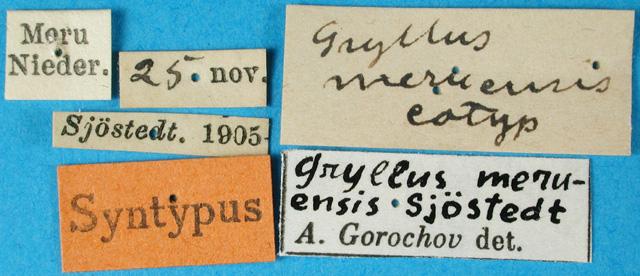 Meru
Nieder.
25. nov.
Sjöstedt. 1905-
Gryllus
meruensis
cotyp
Syntypus
Gryllus meru-
ensis Sjöstedt
A. Gorochov det.